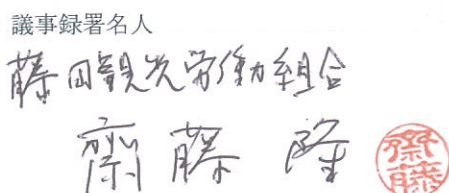 議事録署名人
藤田観光労働組合
齋藤 隆
齋藤